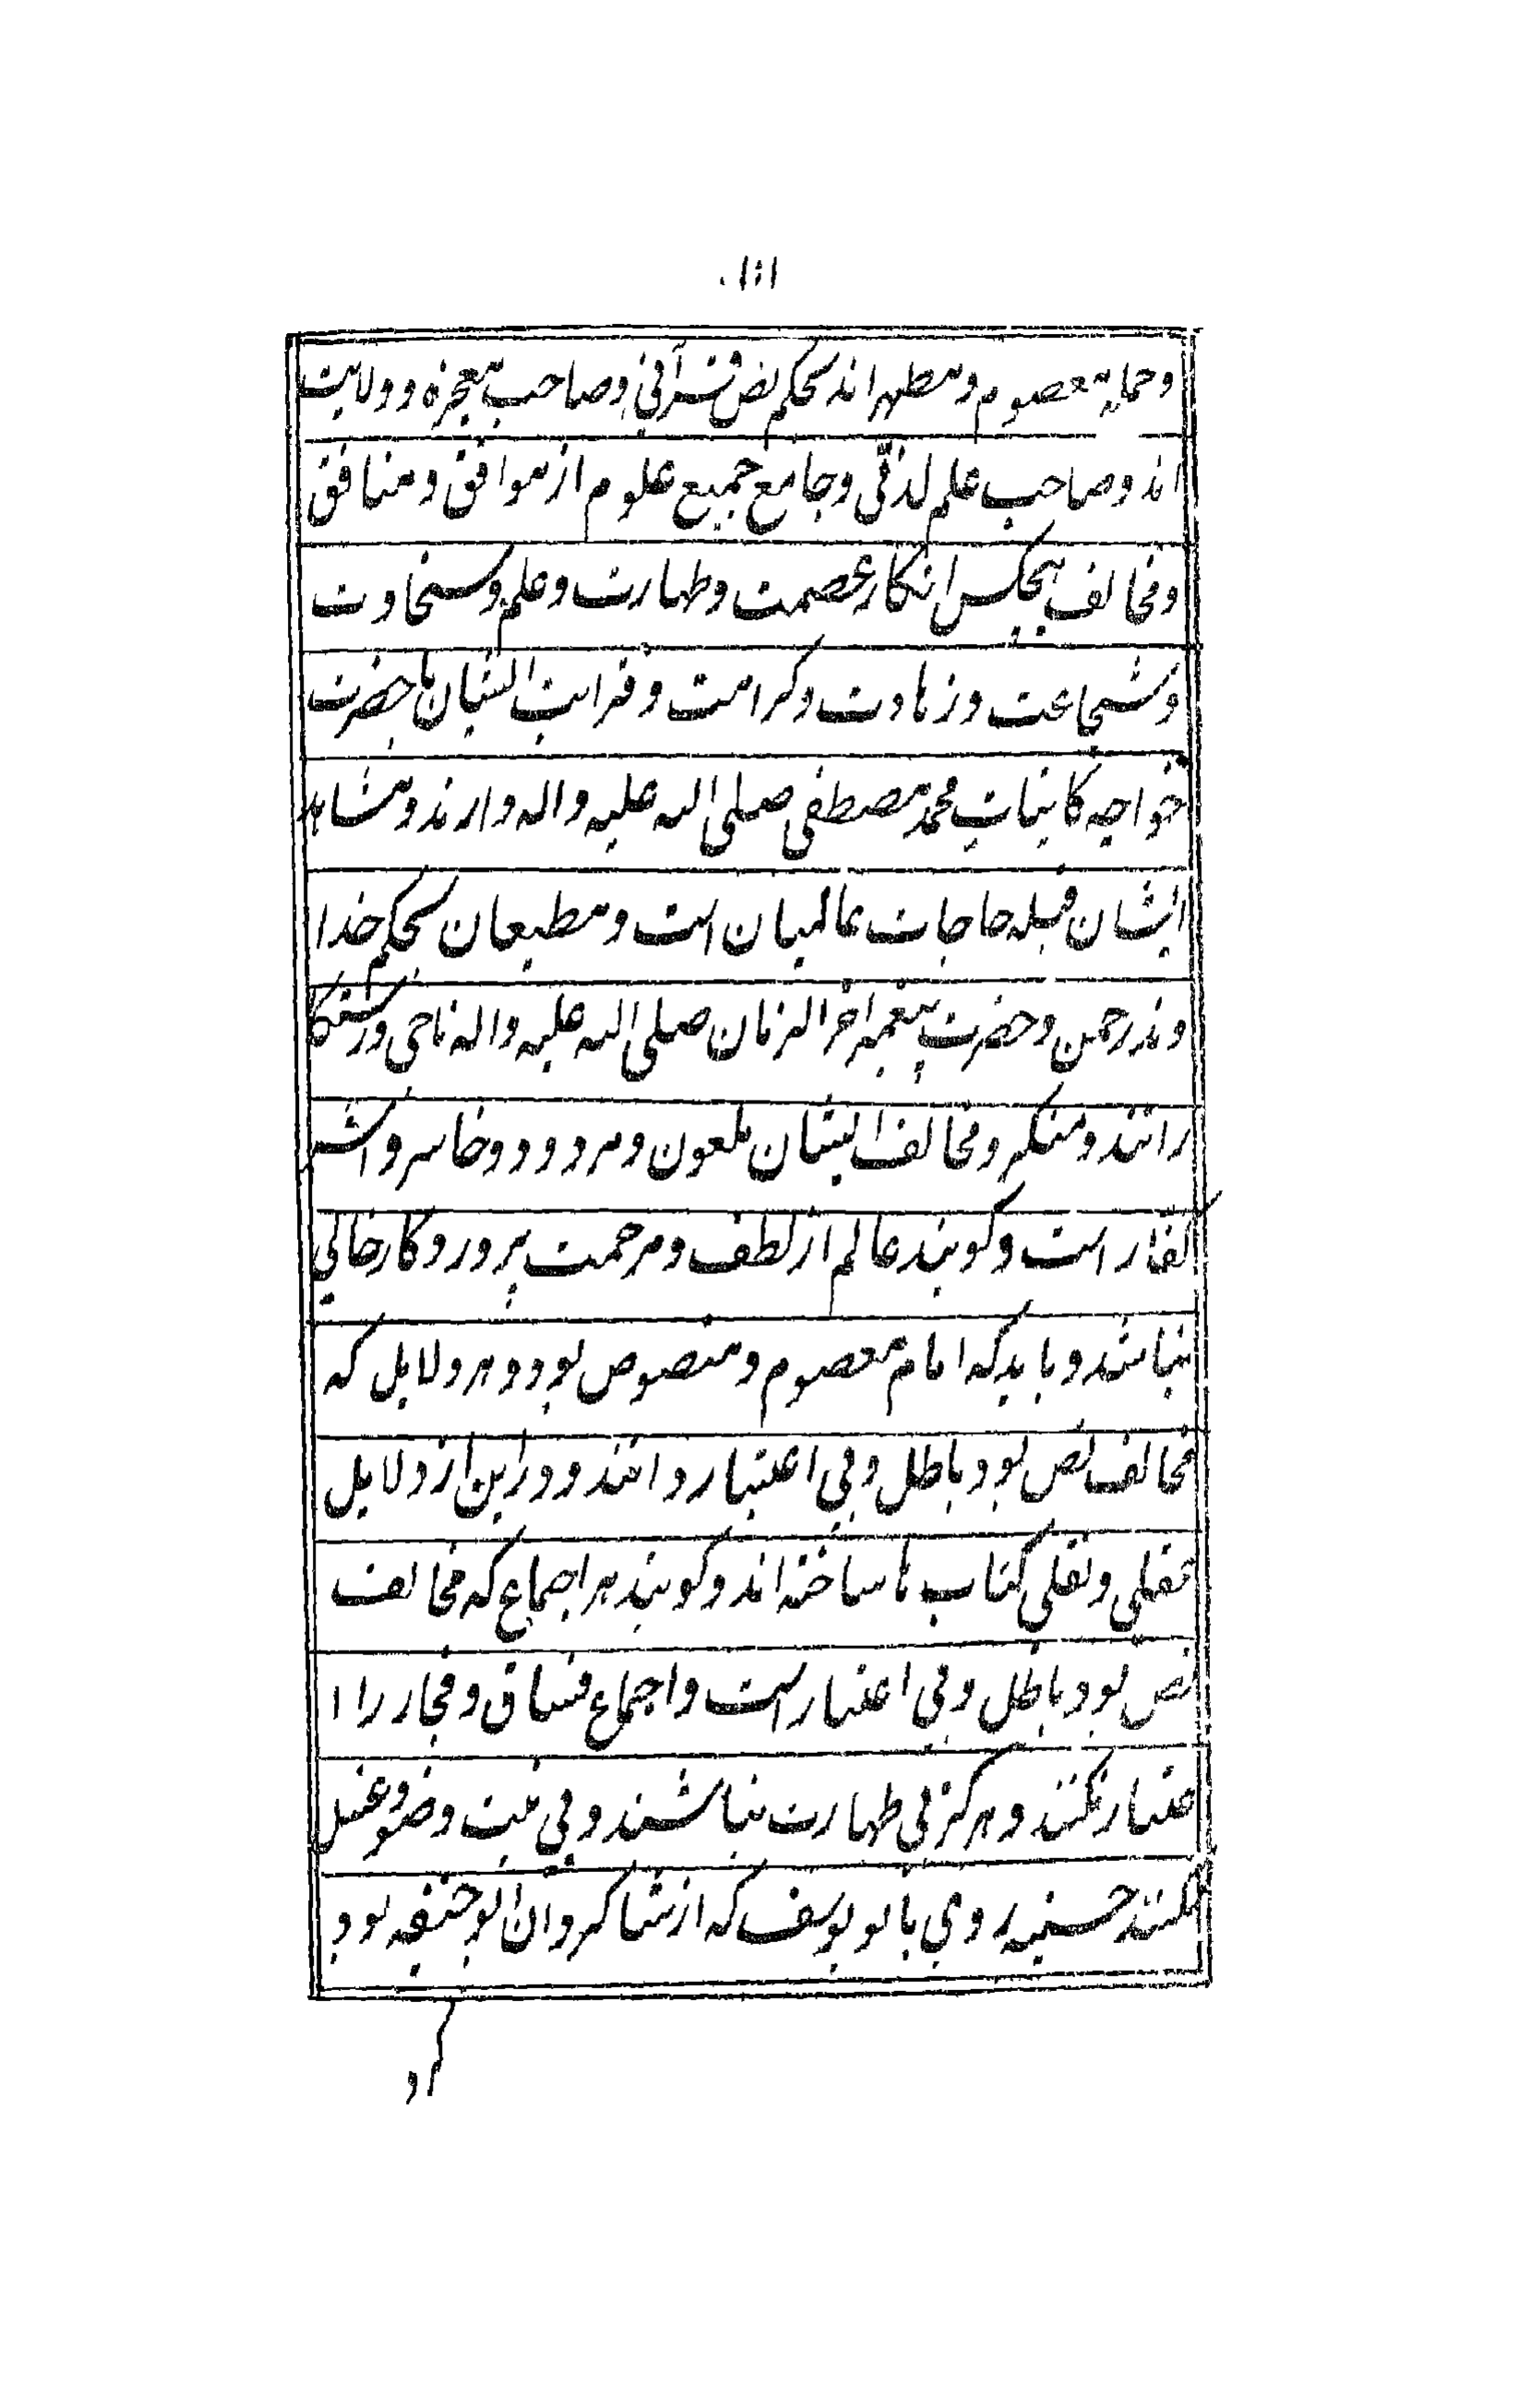 وحمایة معصوم ومطهر اند بحکم نص قرآنی وصاحب معجزه وولایت
اند وصاحب علم لدنی وجامع جمیع علوم از موافق ومنافق
ومخالف هیچکس انکار عصمت وطهارت وعلم وسخاوت
وشجاعت وزهادت وکرامت وقرابت ایشان با حضرت
خواجه کاینات محمد مصطفی صلی الله علیه واله دارند ومشاهد
ایشان قبله حاجات عالمیان است ومطیعان بحکم خدا
وند رحمن وحضرت پیغمبر اخر الزمان صلی الله علیه واله ناجی ورستکا
رانند ومنکر ومخالف ایشان ملعون ومردود وخاسر واشد
کفار است وکویند عالم از لطف ومرحمت پروردکار خالی
نباشد وباید که امام معصوم ومنصوص بود وهر دلایل که
مخالف نص بود باطل وبی اعتبار دانند ودراین از دلایل
عقلی ونقلی کتاب ها ساخته اند وکویند هر اجماع که مخالف
نص بود باطل وبی اعتبار است واجماع فساق وفجار را ا
عتبار نکنند وهرکز بی طهارت نباشند وبی نیت وضو وغسل
نکنند حسنیه روی بابو یوسف که از شاکردان ابو حنیفه بود
کرد